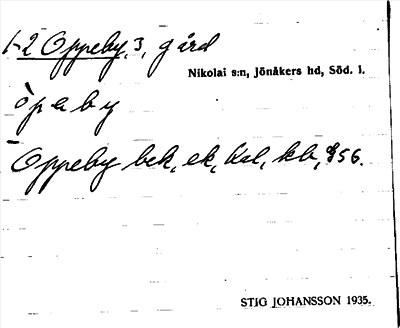 1-2 Oppeby, 3, gård
Nikolai s:n, Jönåkers hd, Söd. l.
òpeby
Oppeby bek, ek, ksl, kb, 856.
STIG JOHANSSON 1935.